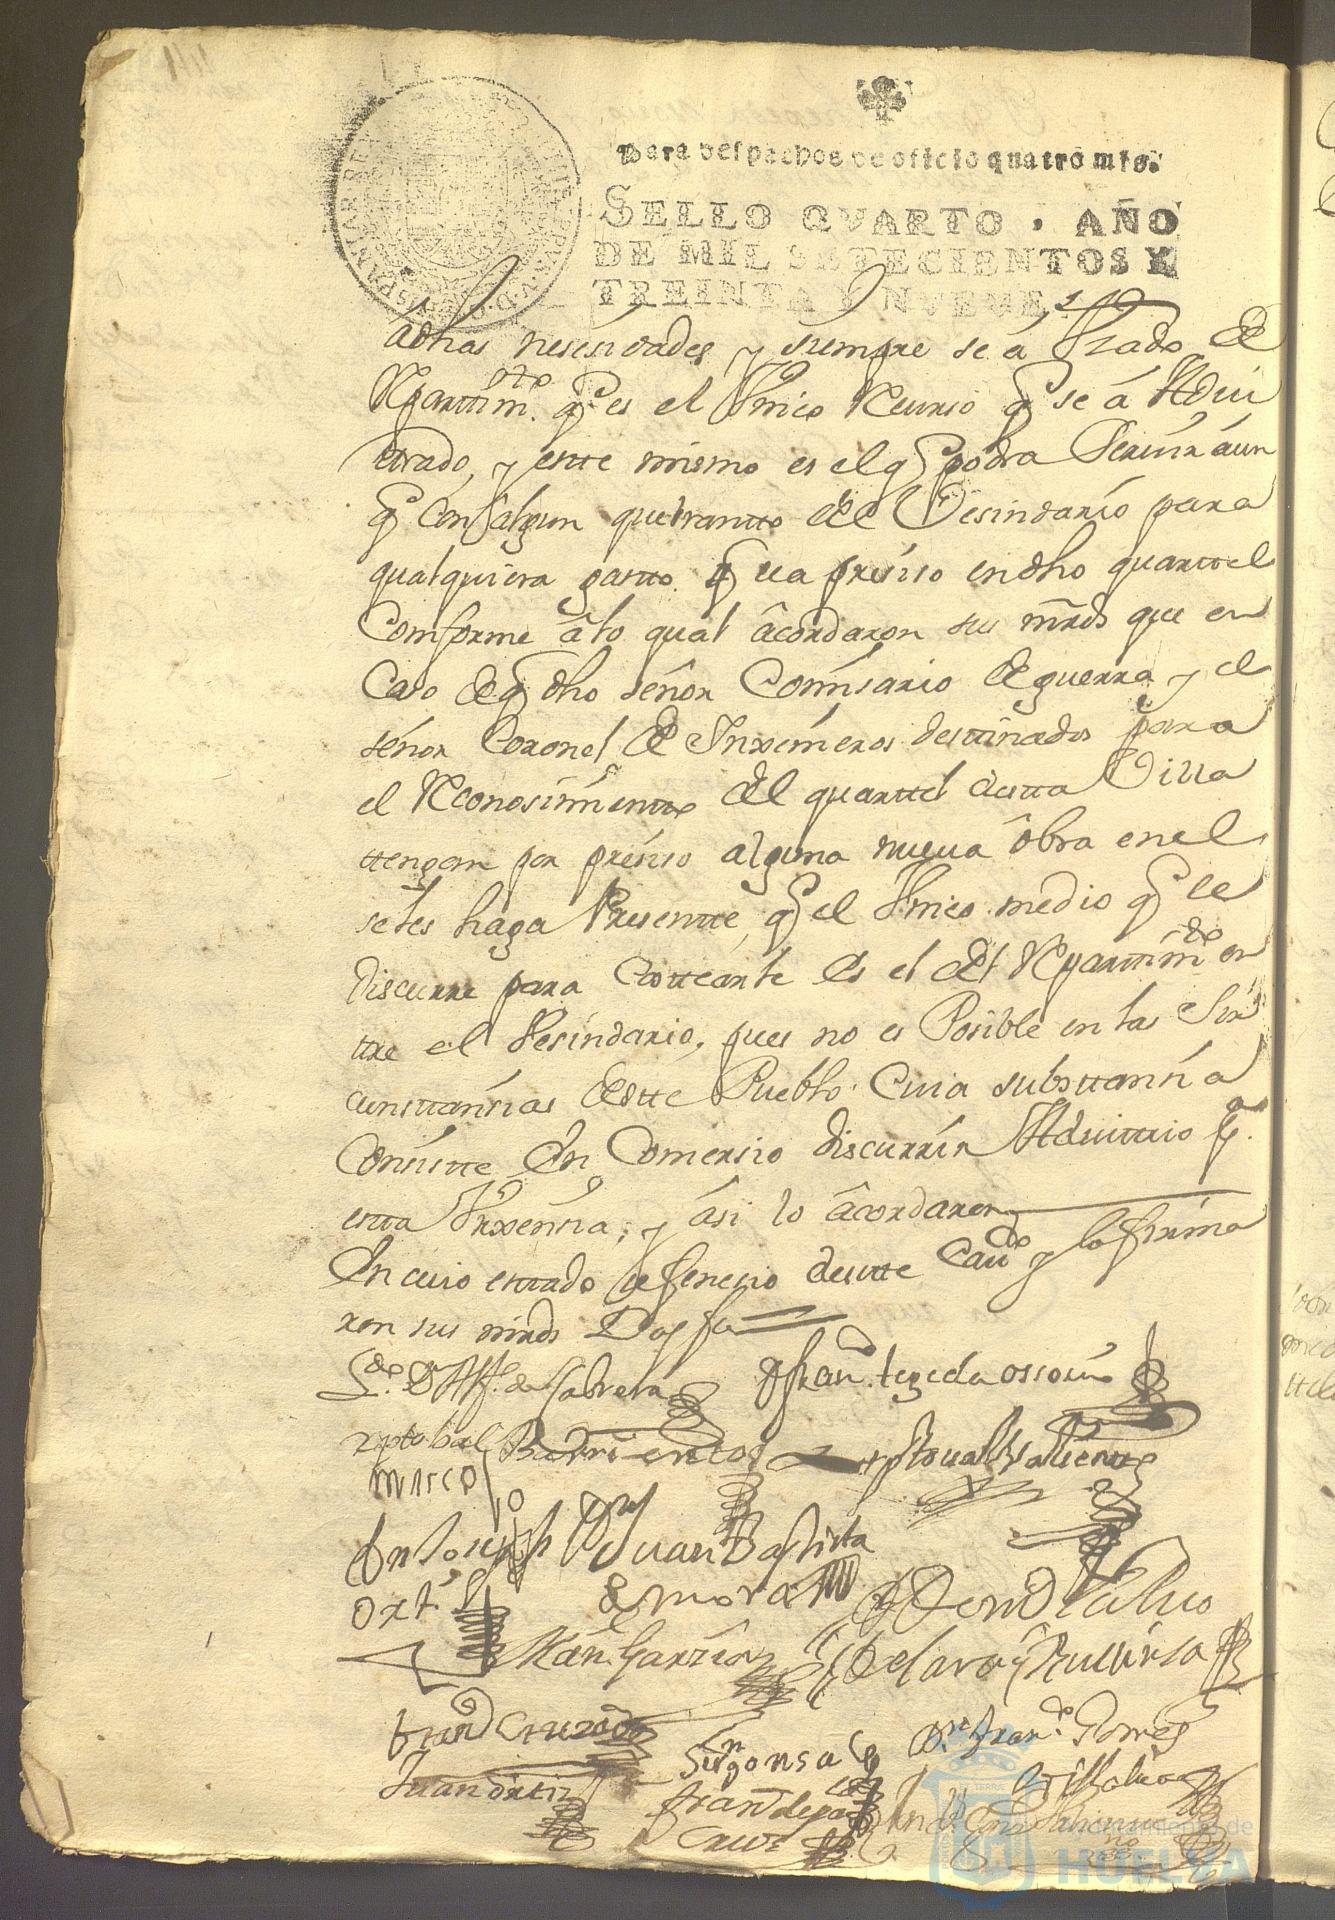 Para despachos de oficio quatro mrs.
SELLO QVARTO . AÑO
DE MIL SETECIENTOS Y
TREINTA Y NUEVE
adhas nesesidades y siempre se á Vsado de
Rpartim.to q es el Vnico Recurso q se á Advi
trado, y este mismo es el q podra Seruir áun
q con algun quebrantto del Vesindario para
qualquiera gasto q sea presiso en dho quarttel
Comforme a lo qual acordaron sus mrds que en
Caso de q dho señor Comisario de guerra y el
señor Coronel de Inxenieros destinados para
el Reconosimientto del quarttel destta Villa
ttengan por presiso alguna nueua obra en el
se les haga Presentte, q el Vnico medio q se
discurre para Costearle es el del Rpartim.to en
ttre el Vesindario, pues no es Posible en las Sir
cunsttansias desтte Pueblo Cuia substtansia
Consistte En Comersio discurrir Advittrio p.a
estta Vrxensia; y ási lo acordaron
En cuio esttado se fenesio destte Cau.do y lo firma
ron sus mrds Doy fe
Cabrera
D fran.co tegeda ossorio
xptobal Barrientos
xptoual Valiente
Juan Baptista
de mora
Garzia
Fran.co
Juan ortiz
D.n Fran.co Gomes
fran.co de pa
Ayuntamiento de
HUELVA